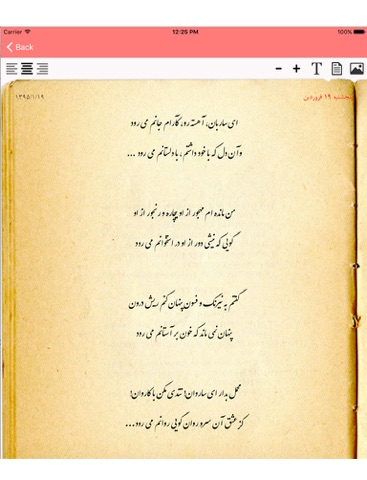 Carrier 12:25 PM 100%
Back
- + T
پنجشنبه ۱۹ فروردین
۱۳۹۵/۱/۱۹
ای ساربان، آهسته رو، کآرام جانم می رود
وآن دل که با خود داشتم ، با دلستانم می رود ...
من مانده ام مهجور از او بیچاره و رنجور از او
گویی که نیشی دور از او در استخوانم می رود
گفتم به نیرنگ و فسون پنهان کنم ریش درون
پنهان نمی ماند که خون بر آستانم می رود
محمل بدار ای ساروان! تندی مکن با کاروان!
کز عشق آن سرو روان گویی روانم می رود...